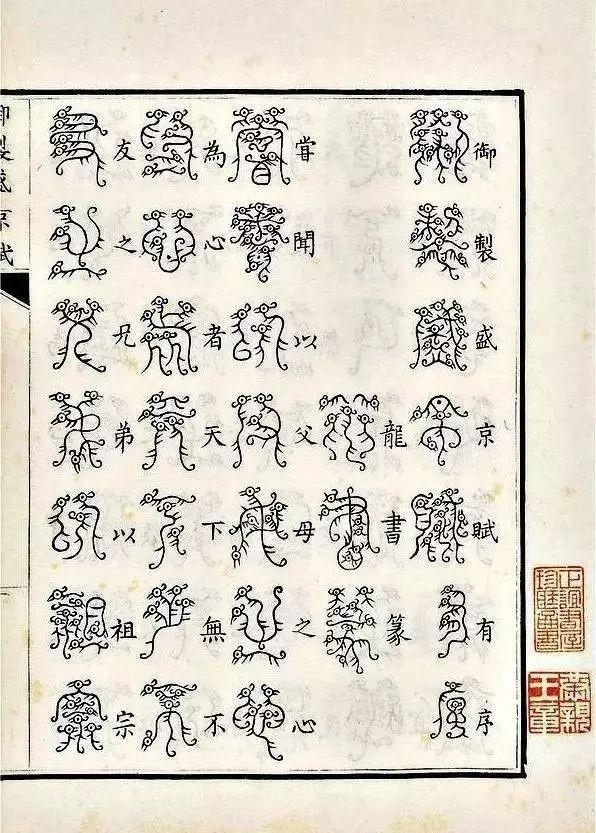 御製盛京賦有序
龍書篆
甞聞以父母之心
為心者天下無不
友之兄弟以祖宗
御製盛京賦
榮親王章